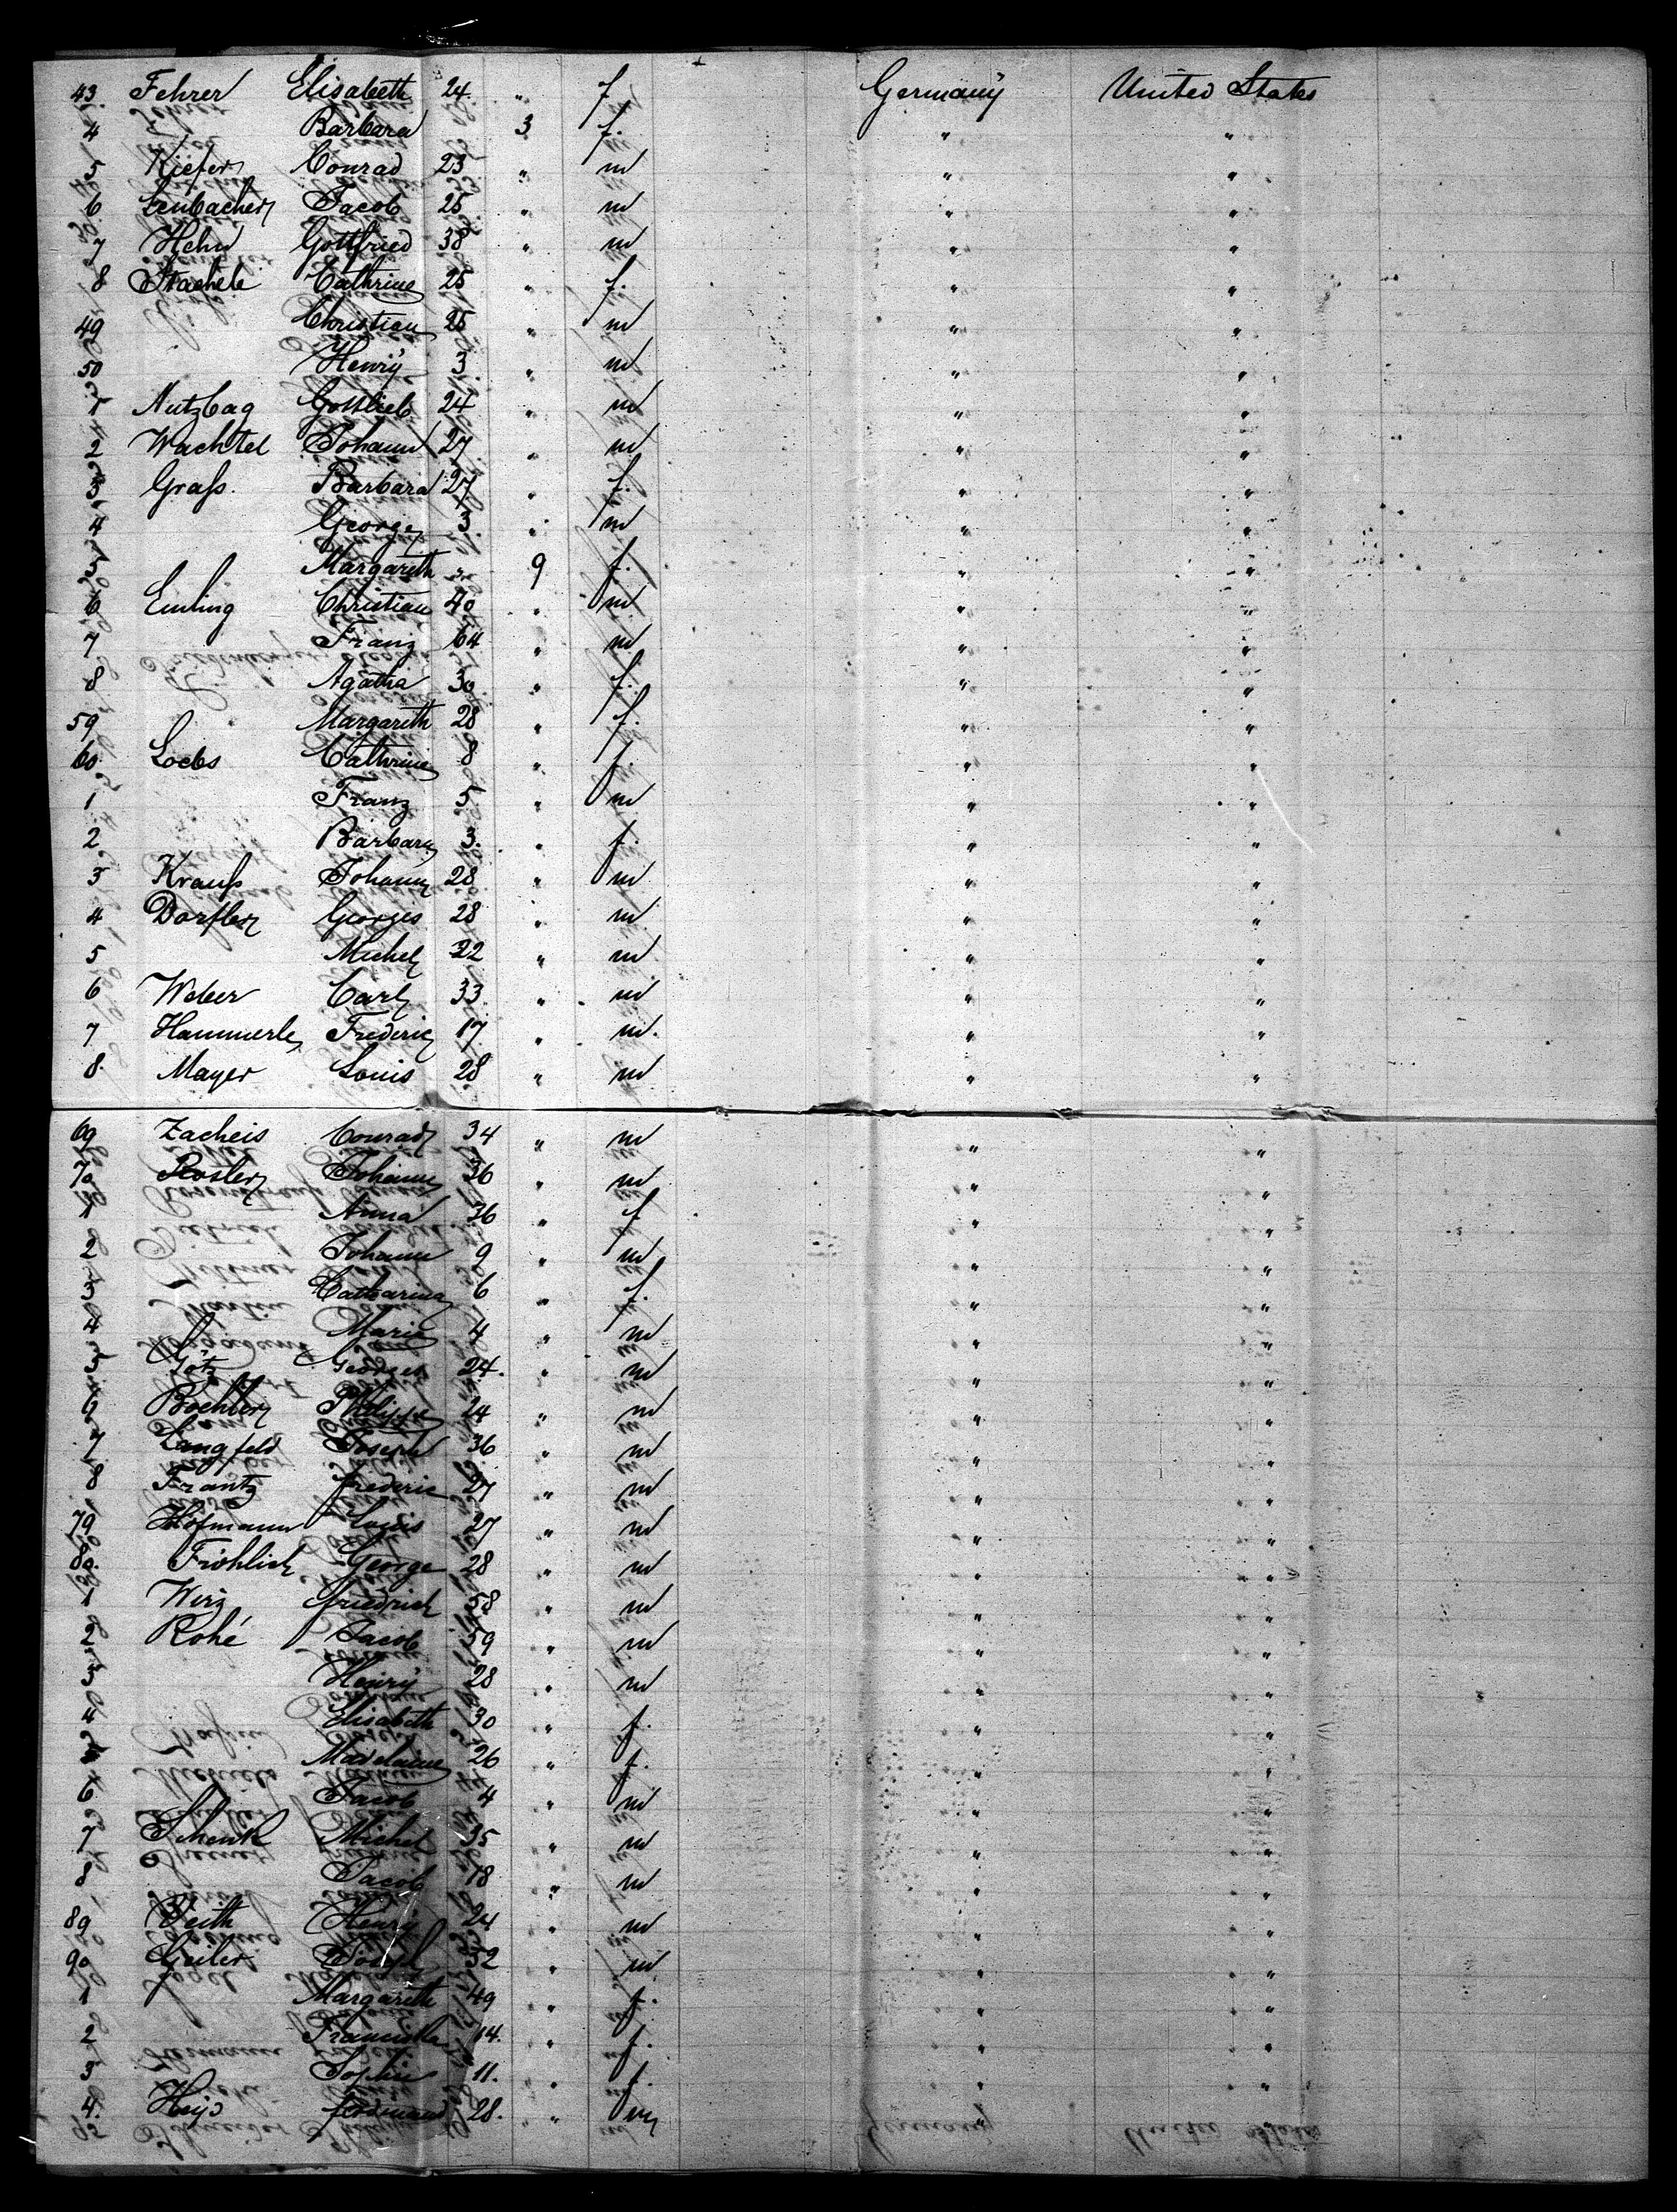 43 Fehrer Elisabeth 24 " f Germany United States
4 Barbara 3 f. " "
5 Kiefer Conrad 23 " m " "
6 Jacob 25 " m " "
7 Hehn Gottfried 38 " m " "
8 Stachele Cathrine 25 " f. " "
49 Christian 25 " m " "
50 Henry 3 " m " "
1 Nutzbag Gottlieb 24 " m " "
2 Wachtel Johann 27 " m " "
3 Graß. Barbara 27 " f. " "
4 George 3 " m " "
5 Margareth " 9 f. " "
6 Emling Christian 40 " m " "
7 Franz 64 " m " "
8 Agatha 30 " f. " "
59 Margareth 28 " f. " "
60 Loebs Cathrine 8 " f. " "
1 Franz 5 " m " "
2 Barbara 3. " f. " "
3 Krauß Johann 28 " m " "
4 Dorfler Georges 28 " m " "
5 Michel 22 " m " "
6 Weber Carl 33 " m " "
7 Hammerle Frederic 17 " m. " "
8. Mayer Louis 28 " m " "
69 Zacheis Conrad 34 " m " "
70 Rosler Johann 36 " m " "
1 Anna 36 " f " "
2 Johann 9 " m " "
3 Catharina 6 " f. " "
4 Marie 4 " m " "
5 Götz Georges 24. " m " "
6 Bochler Philippe 24 " m " "
7 Langfeld Joseph 36 " m " "
8 Frantz frederic 27 " m " "
79 Hofmann Louis 27 " m " "
80. Fröhlich George 28 " m " "
1 Wirz friedrich 58 " m " "
2 Rohé Jacob 59 " m " "
3 Henry 28 " m " "
4 Elisabeth 30 " f. " "
5 Madelaine 26 " f. " "
6 Jacob 4 " m " "
7 Schenk Michel 35 " m " "
8 Jacob 18 " m " "
89 Veith Henry 24 " m " "
90 Geiler Joseph 52 " m " "
1 Margareth 49 " f. " "
2 Franciska 14. " f. " "
3 Sophie 11. " f. " "
4. ferdinand 28. " m " "